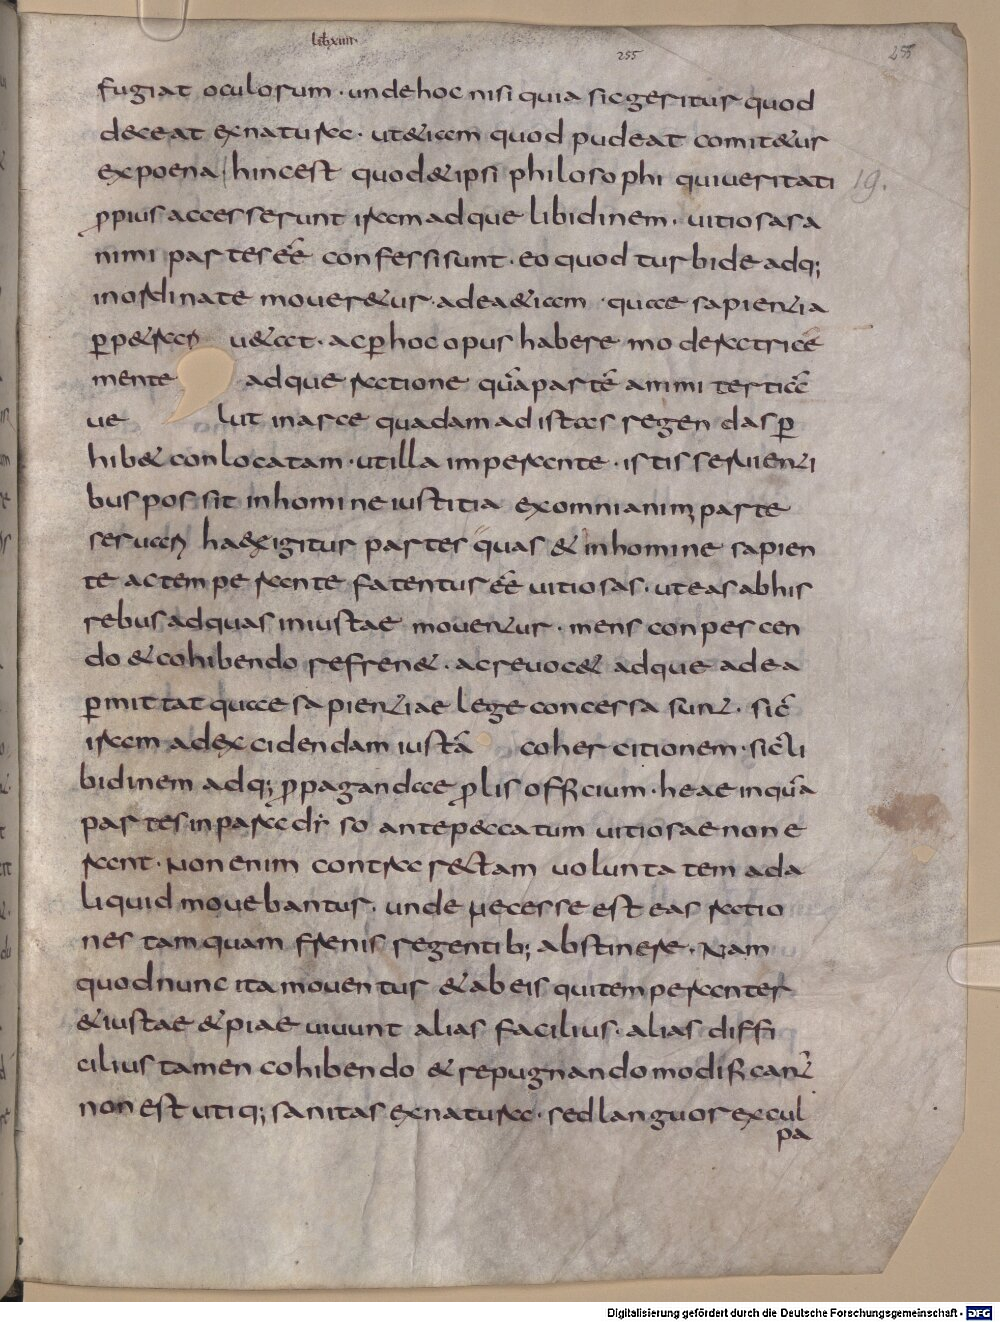 lib xiiii
255
255
fugiat oculorum · unde hoc nisi quia sic geritur quod
deceat ex natura · ut etiam quod pudeat comitetur
ex poena hinc est quod et ipsi philosophi qui veritati
19.
ppius accesserunt iram adque libidinem · uitiosas a
nimi partes eē confessi sunt · eo quod turbide adq;
inordinate moueretur · ad ea etiam quae sapientia
p petrari uetat · ac p hoc opus habere moderatricē
mente adque ratione quā partē animi tertiā
ue lut in arce quadam ad istas regendas p
hibet conlocatam · ut illa imperante · istis seruienti
bus possit in homine iustitia ex omni animi parte
seruari hae igitur partes quas et in homine sapien
te ac temperante fatentur eē uitiosas · ut eas ab his
rebus ad quas iniuste mouentur · mens conpescen
do et cohibendo refrenet · ac reuocet adque ad ea
pmittat quae sapientiae lege concessa sunt · sicē
iram ad excidendam iustā cohercitionem · sic li
bidinem adq; ppagandae plis officium · heae inquā
partes in paradiso ante peccatum uitiosae non e
rant · Non enim contra rectam uoluntatem ad a
liquid mouebantur · unde necesse est eas ratio
nes tamquam frenis regentib; abstinere · Nam
quod nunc ita mouentur et ab eis qui temperanter
et iustae et piae uiuunt alias facilius · alias diffi
cilius tamen cohibendo et repugnando modificant
non est utiq; sanitas ex natura · sed languor ex cul
pa
Digitalisierung gefördert durch die Deutsche Forschungsgemeinschaft - DFG